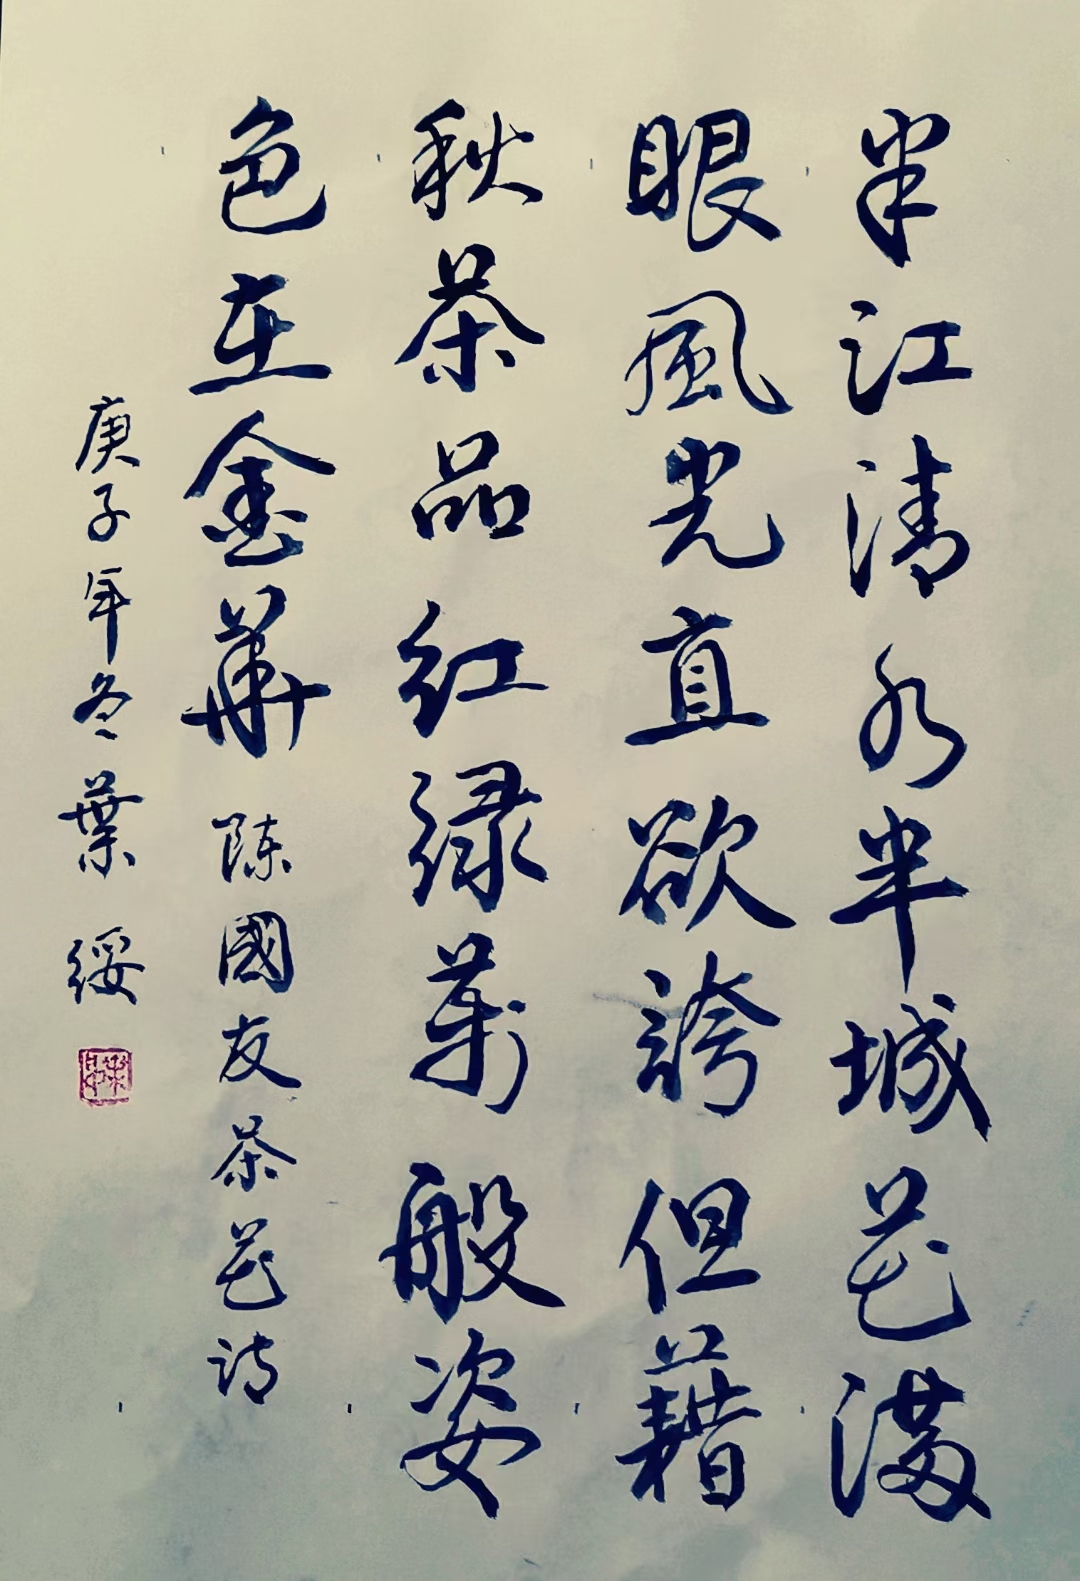 半江清水半城花满
眼風光直欲誇但藉
秋茶品红绿萬般姿
色在金華
陈國友茶花诗
庚子年冬葉綏